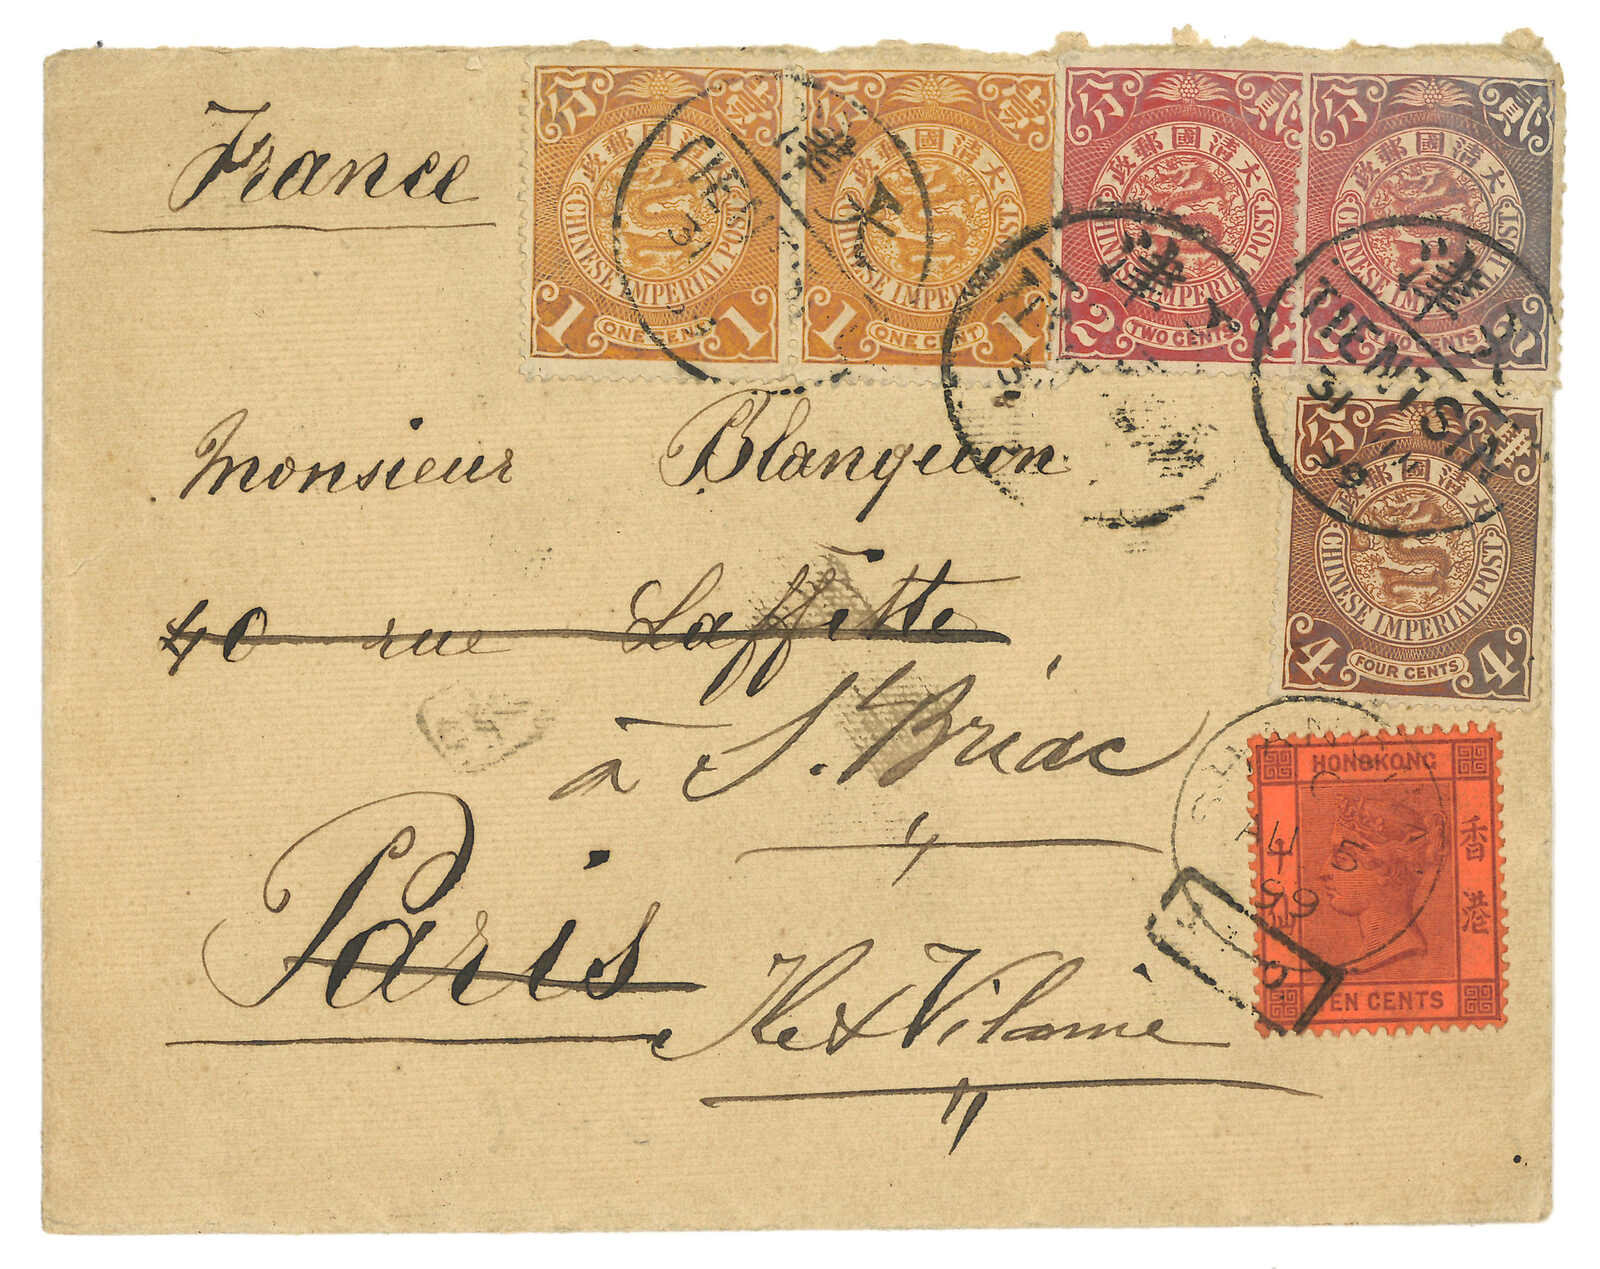 France
分 壹
大清國郵政
CHINESE IMPERIAL POST
1 ONE CENT 1
分 壹
大清國郵政
CHINESE IMPERIAL POST
1 ONE CENT 1
分 貳
大清國郵政
CHINESE IMPERIAL POST
2 TWO CENTS 2
分 貳
大清國郵政
CHINESE IMPERIAL POST
2 TWO CENTS 2
大
津
津
TIENTSIN
31
分 肆
大清國郵政
CHINESE IMPERIAL POST
4 FOUR CENTS 4
Monsieur Blanquon
40 rue Laffitte
à S. Briac
Paris
Ile & Vilaine
HONGKONG
香港
TEN CENTS
SHANGHAI
5
99